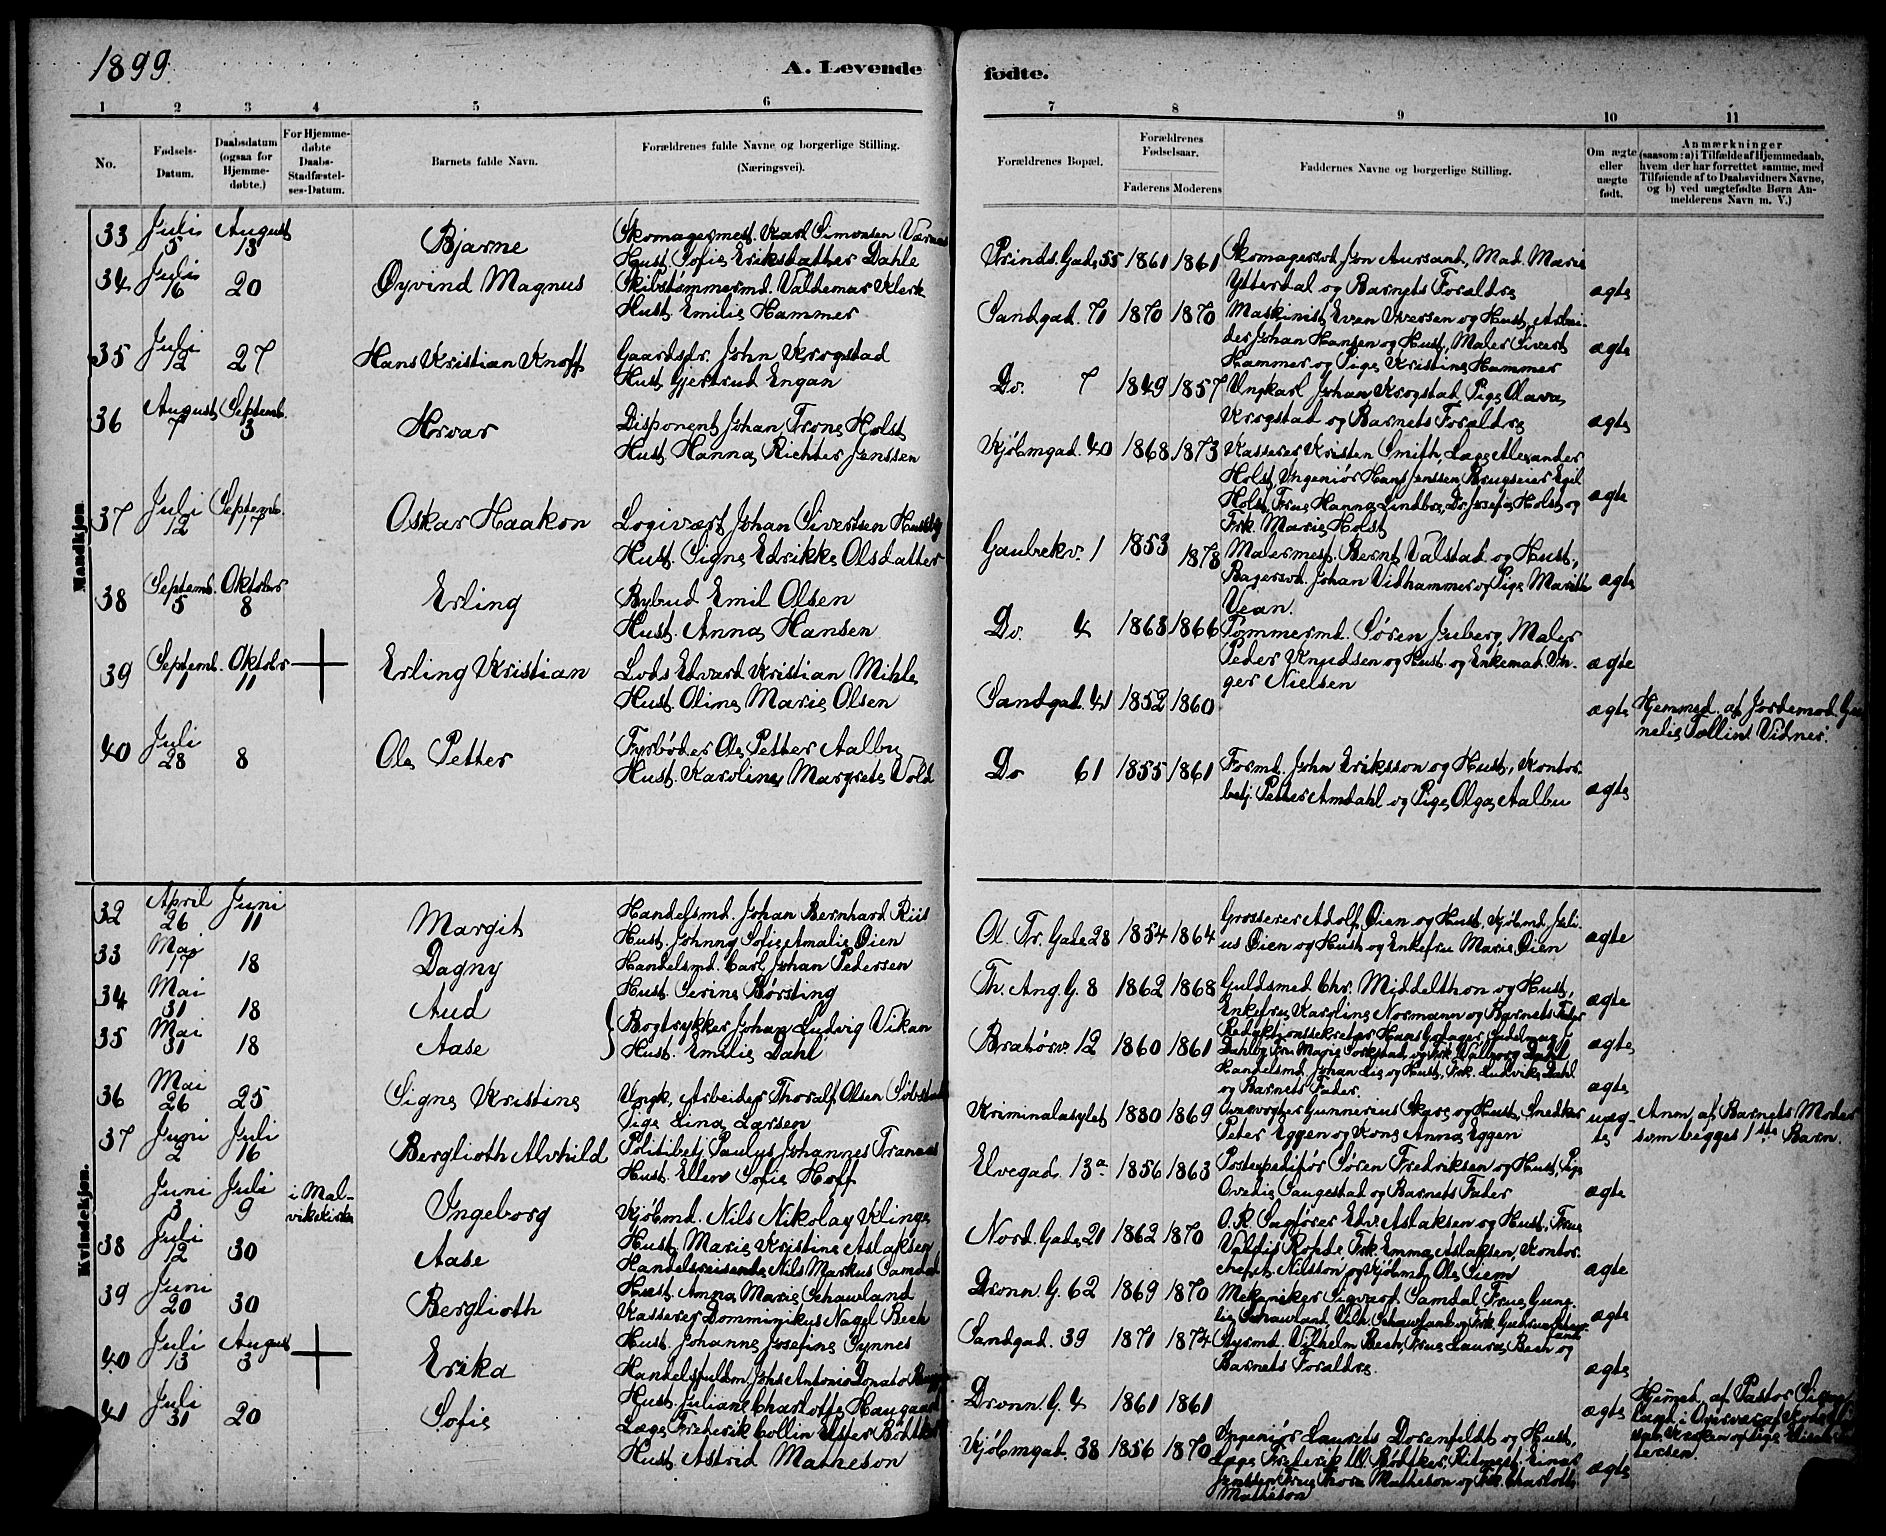 1899
A. Levende
fødte.
1 2 3 4 5 6
7 8 9 10 11
No.
Fødsels-
Datum.
Daabsdatum
(ogsaa for
Hjemme-
døbte.)
For Hjemme-
døbte
Daabs-
Stadfæstel-
ses-Datum.
Barnets fulde Navn.
Forældrenes fulde Navne og borgerlige Stilling.
(Næringsvei).
Forældrenes Bopæl.
Forældrenes
Fødselsaar.
Faderens Moderens
Faddernes Navne og borgerlige Stilling.
Om ægte
eller
uægte
født.
Anmærkninger
(saasom: a) i Tilfælde af Hjemmedaab,
hvem der har forrettet samme, med
Tilføiende af to Daabsvidners Navne,
og b) ved uægtefødte Børn An-
melderens Navn m. V.)
Mandkjøn.
33 Juli 5 August 13 Bjarne Skomagermest. Karl Simonsen
Hust. Sofie Eriksdatter Dahle
34 Juli 16 20 Øyvind Magnus Skibstømmermd. Valdemar Klerk
Hust. Emilie Hammer
35 Juli 12 27 Hans Kristian Knoff Gaardsdr. John Krogstad
Hust. Gjertrud Engan
36 August 7 Septemb. 3 Hroar Disponent Johan Trone Holst
Hust. Hanna Richter Jenssen
37 Juli 12 Septemb. 17 Oskar Haakon Logivært Johan Sivertsen
Hust. Signe Edrikke Olsdatter
38 Septemb. 5 Oktober 8 Erling Bybud Emil Olsen
Hust. Anna Hansen
39 Septemb. 1 Oktober 11 Erling Kristian Lods Edvard Kristian Mihle
Hust. Oline Marie Olsen
40 Juli 28 8 Ole Petter Fyrbøder Ole Petter Aalbu
Hust. Karoline Margrete Vold
Kvindekjøn.
32 April 26 Juni 11 Margit Handelsmd. Johan Bernhard Riis
Hust. Johnny Sofie Amalie Øien
33 Mai 17 18 Dagny Handelsmd. Carl Johan Pedersen
Hust. Serine Børsting
34 Mai 31 18 Aud
35 Mai 31 18 Aase Bogtrykker Johan Ludvig Vikan
Hust. Emilie Dahl
36 Mai 26 25 Signe Kristine Ungk. Arbeider Thoralf Olsen
Pige Lina Larsen
37 Juni 2 Juli 16 Berglioth Alvhild Politibetj. Paulus Johannes
Hust. Ellen Sofie Hoff
Juni 3 Juli 9 i Mal-
vikskirke Ingeborg Kjøbmd. Nils Nikolay Klinge
Hust. Marie Kristine Aslaksen
38 Juli 12 30 Aase Handelsreisende Nils Markus
Hust. Anna Marie Schawland
39 Juni 20 30 Berglioth Kasserer Domminikus Nagel Beck
Hust. Johanne Josefine Synnes
40 Juli 13 August 3 Erika
Hust. Juliane Charlotte
41 Juli 31 20 Sofie Læge Frederik Collin
Hust. Astrid Matheson
Prinds. Gade 55 1861 1861 Skomagersvd. Jon Aursand, Mad. Marie
Ytterdal og Barnets Forældre ægte
Sandgad. 71 1870 1870 Maskinist Even Iversen og Hust, Arbei-
der Johan Hansen og Hust, Maler Sivert
Hammer og Pige Kristine Hammer ægte
Do. 7 1849 1857 Ungkarl Johan Krogstad, Pige Olava
Krogstad og Barnets Forældre ægte
Kjøbmgad. 40 1868 1873 Kasserer Kristen Smith, Læge Alexander
Holst, Ingeniør Hans Jenssen, Brugseier Egil
Holst, Frue Hanna Do. Josefa Holst og
Frk. Marie Holst ægte
Gaubekv. 1 1853 1878 Malermest. Bernt Valstad og Hust,
Bagersvd. Johan Vidhammer og Pige
Vean. ægte
Do. 4 1863 1866 Tømmermd. Søren Juberg, Maler
Peder Knudsen og Hust. og Enkemad. In-
ger Nielsen ægte
Sandgad. 41 1852 1860 ægte Hjemmed. af Jordemod.
Vidner.
Do 61 1855 1861 Formd. John Eriksson og Hust, Kontor-
betj. Petter Amdahl og Pige Olga Aalbu ægte
Ol. Tr. Gade 28 1854 1864 Grosserer Adolf Øien og Hust, Kjøbmd. Juli-
us Øien og Hust og Enkefru Marie Øien ægte
Th. Ang. G. 8 1862 1868 Guldsmed Chr. Middelthon og Hust,
Enkefru Karoline Normann og Barnets Fader ægte
Bratørv. 12 1860 1861 Redaktionssekretær Hans
Dahl, Fru Marie og Frk. Valborg Dahl ægte
Handelsmd. Johan Lie og Hust, Frk. Ludvikke Dahl
og Barnets Fader. ægte
Kriminalasylet 1880 1869 Overvogter Gunnerius Skare og Hust, Snedker
Peter Eggen og Kone Anna Eggen uæg-
te Anm. af Barnets Moder
som begges 1ste Barn.
Elvegad. 13a 1856 1863 Postexpeditør Søren Fredriksen og Hust, Pige
Ovedie Saugestad og Barnets Fader ægte
Nord. Gade 21 1862 1870 O.R. Sagfører Edv. Aslaksen og Hust, Frue
Valdis Rohde, Frk. Emma Aslaksen, Kontor-
chef Nilsson og Kjøbmd. Ole Siem ægte
Dronn. G. 62 1869 1870 Mekaniker Sigvard Samdal, Frue
Schawland, Vilh. Schawland og Frk. ægte
Sandgad. 39 1871 1874 Styrmd. Vilhelm Beck, Frue Laura Beck og
Barnets Forældre. ægte
Dronn. G. 4 1861 1861 ægte Hjemmed. af Pastor
Kjøbmgad. 38 1856 1870 Ingeniør Laurets Dorenfeldt og Hust,
Læge Frederik Bødtker, Ritmest. Einar
Jenssen, Frue Thora Matheson og Frk. Charlotte
Matheson ægte